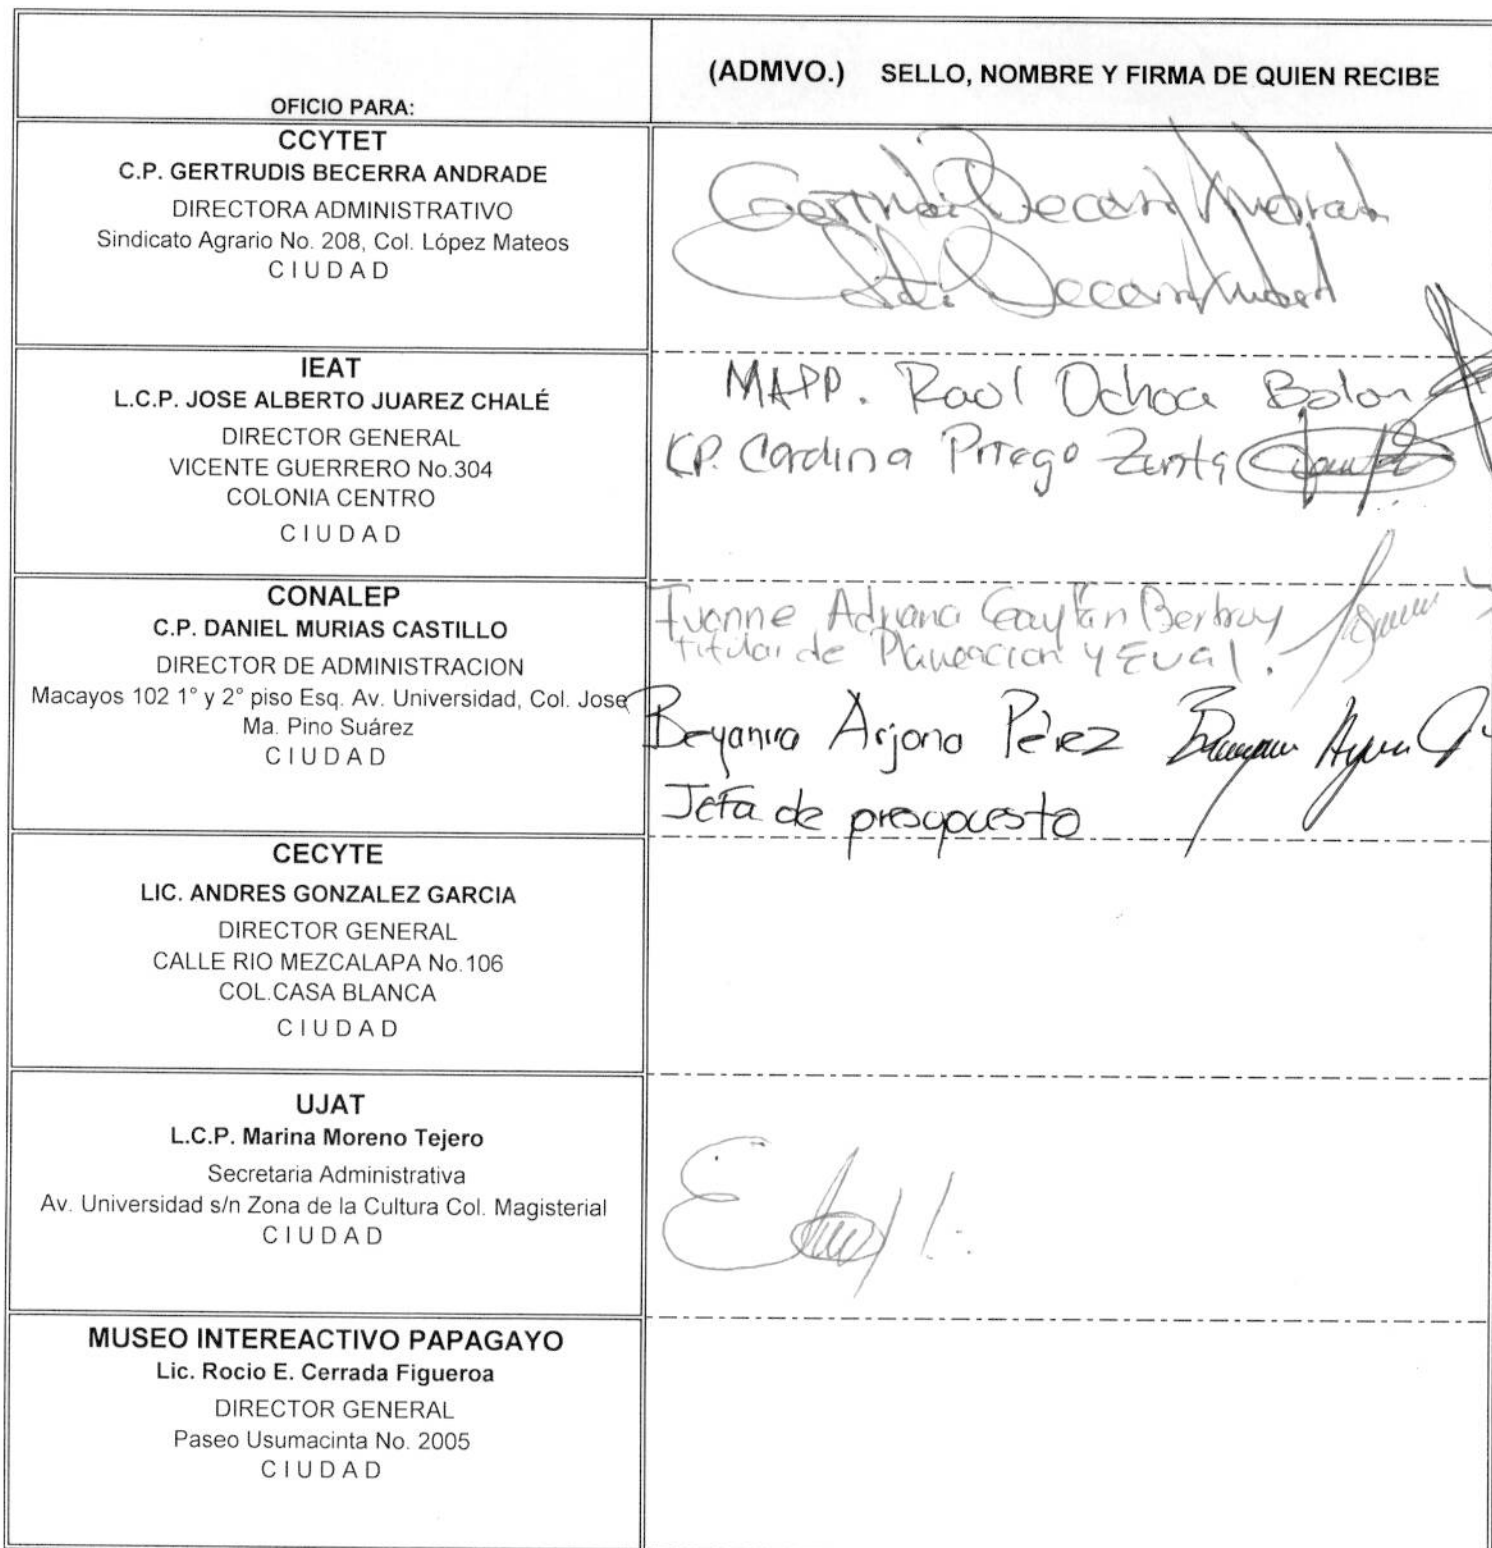 (ADMVO.) SELLO, NOMBRE Y FIRMA DE QUIEN RECIBE
OFICIO PARA:
CCYTET
C.P. GERTRUDIS BECERRA ANDRADE
DIRECTORA ADMINISTRATIVO
Sindicato Agrario No. 208, Col. López Mateos
CIUDAD
IEAT
L.C.P. JOSE ALBERTO JUAREZ CHALÉ
DIRECTOR GENERAL
VICENTE GUERRERO No.304
COLONIA CENTRO
CIUDAD
MAPP. Raol Ochoa Bolon
Priego
CONALEP
C.P. DANIEL MURIAS CASTILLO
DIRECTOR DE ADMINISTRACION
Macayos 102 1° y 2° piso Esq. Av. Universidad, Col. Jose
Ma. Pino Suárez
CIUDAD
Ivonne Adriana Gaytán
Titular de Planeacion y Eval.
Beyanira Arjona Pérez
Jefa de presupuesto
CECYTE
LIC. ANDRES GONZALEZ GARCIA
DIRECTOR GENERAL
CALLE RIO MEZCALAPA No.106
COL.CASA BLANCA
CIUDAD
UJAT
L.C.P. Marina Moreno Tejero
Secretaria Administrativa
Av. Universidad s/n Zona de la Cultura Col. Magisterial
CIUDAD
MUSEO INTEREACTIVO PAPAGAYO
Lic. Rocio E. Cerrada Figueroa
DIRECTOR GENERAL
Paseo Usumacinta No. 2005
CIUDAD